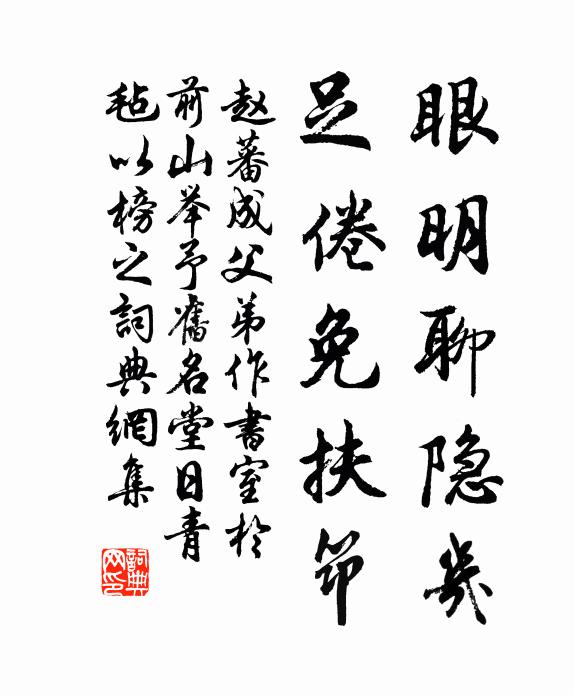 眼明聊隐几
足倦免扶筇
赵蕃成父弟作書室於
前山举予舊名堂日青
毡以榜之詞典網集
詞典網印